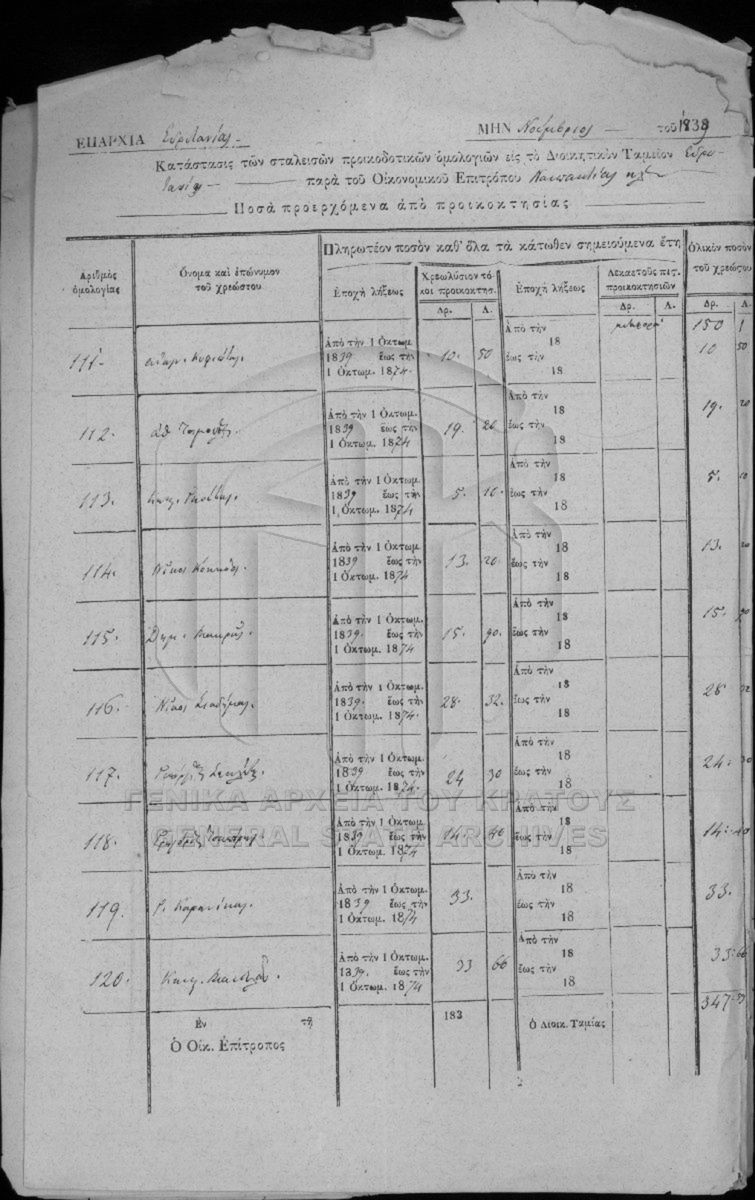 ΕΠΑΡΧΙΑ Εὐρυτανίας ΜΗΝ Νοέμβριος τοῦ 1839
Κατάστασις τῶν σταλεισῶν προικοδοτικῶν ὁμολογιῶν εἰς τὸ Διοικητικὸν Ταμεῖον Εὐρυ
τανίας παρὰ τοῦ Οἰκονομικοῦ Ἐπιτρόπου Ναυπακτίας
Ποσὰ προερχόμενα ἀπὸ προικοκτησίας
Ἀριθμὸς ὁμολογίας
Ὄνομα καὶ ἐπώνυμον τοῦ χρεώστου
Πληρωτέον ποσὸν καθ' ὅλα τὰ κάτωθεν σημειούμενα ἔτη
Ὁλικὸν ποσὸν τοῦ χρεώσου
Ἐποχὴ λήξεως
Χρεωλύσιον τόκοι προικοκτησ.
Ἐποχὴ λήξεως
Δεκαετοῦς πισ. προικοκτησιῶν
Δρ. Λ. Δρ. Λ. Δρ. Λ.
μεταφορὰ 150 1
111 Ἀπὸ τὴν 1 Ὀκτωμ. 1839 ἕως τὴν 1 Ὀκτωμ. 1874 10 50 Ἀπὸ τὴν 18 ἕως τὴν 18 10 50
112. Ἀθ Ἀπὸ τὴν 1 Ὀκτωμ. 1839 ἕως τὴν 1 Ὀκτωμ. 1874 19 20 Ἀπὸ τὴν 18 ἕως τὴν 18 19 20
113. Ἀπὸ τὴν 1 Ὀκτωμ. 1839 ἕως τὴν 1 Ὀκτωμ. 1874 5 10 Ἀπὸ τὴν 18 ἕως τὴν 18 5 10
114. Νῖκος Ἀπὸ τὴν 1 Ὀκτωμ. 1839 ἕως τὴν 1 Ὀκτωμ. 1874 13 20 Ἀπὸ τὴν 18 ἕως τὴν 18 13 20
115. Δημ. Μακρῆς. Ἀπὸ τὴν 1 Ὀκτωμ. 1839 ἕως τὴν 1 Ὀκτωμ. 1874 15 90 Ἀπὸ τὴν 18 ἕως τὴν 18 15 90
116. Νῖκος Ἀπὸ τὴν 1 Ὀκτωμ. 1839 ἕως τὴν 1 Ὀκτωμ. 1874 28 32 Ἀπὸ τὴν 18 ἕως τὴν 18 28 32
117. Ἀπὸ τὴν 1 Ὀκτωμ. 1839 ἕως τὴν 1 Ὀκτωμ. 1874 24 30 Ἀπὸ τὴν 18 ἕως τὴν 18 24 30
118. Ἀπὸ τὴν 1 Ὀκτωμ. 1839 ἕως τὴν 1 Ὀκτωμ. 1874 14 40 Ἀπὸ τὴν 18 ἕως τὴν 18 14 40
119. Καρανίκας Ἀπὸ τὴν 1 Ὀκτωμ. 1839 ἕως τὴν 1 Ὀκτωμ. 1874 33 Ἀπὸ τὴν 18 ἕως τὴν 18 33
120. Ἀπὸ τὴν 1 Ὀκτωμ. 1839 ἕως τὴν 1 Ὀκτωμ. 1874 33 66 Ἀπὸ τὴν 18 ἕως τὴν 18 33 66
347
Ἐν τῇ 183
Ὁ Οἰκ. Ἐπίτροπος Ὁ Διοικ. Ταμίας
ΓΕΝΙΚΑ ΑΡΧΕΙΑ ΤΟΥ ΚΡΑΤΟΥΣ
GENERAL STATE ARCHIVES